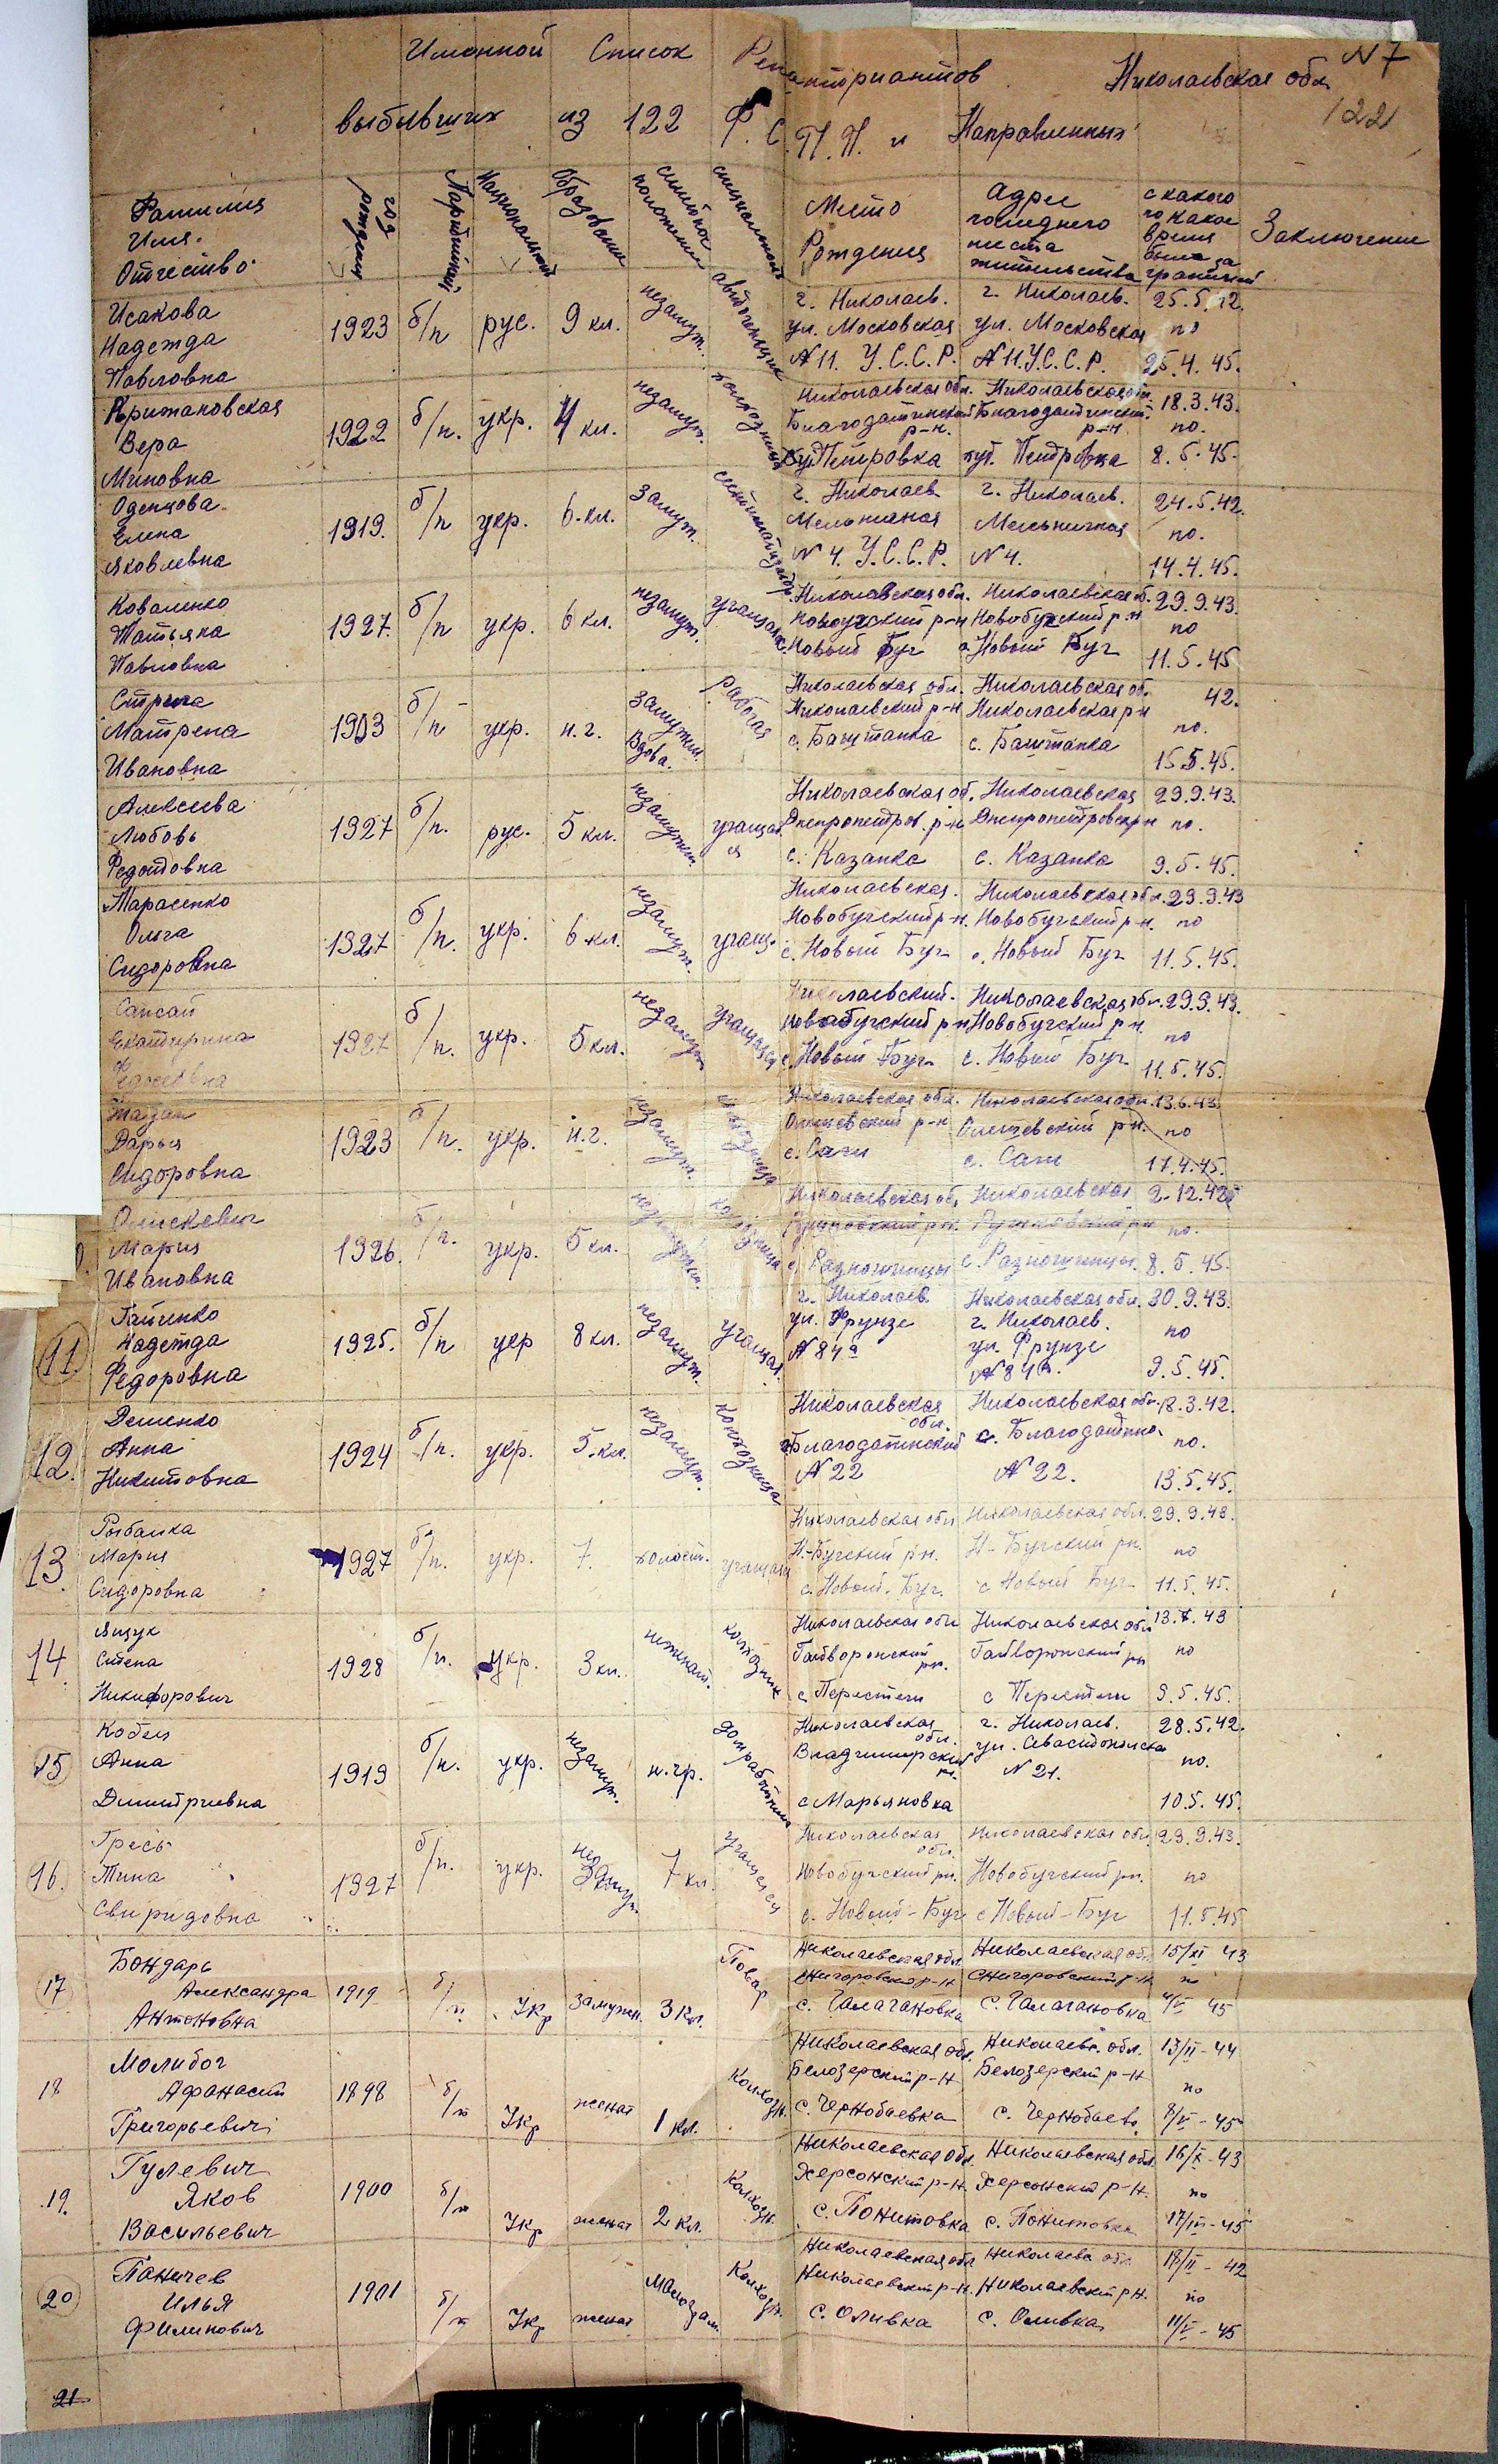 N 7
Именной Список Репатриантов Николаевская обл
122
выбывших из 122 Ф.С.П.П. и Направленных
Фамилия Имя. Отчество.
год рождения
Партийный
Национальный
Образован
семейное положение
социальное
Место Рождения
Адрес последнего места жительства
с какого по какое время была за границей
Заключение
Исакова г. Николаев. г. Николаев. 25.5.42.
Надежда 1923 б/п рус. 9 кл. незамуж. ул. Московская ул. Московская по
Павловна N 11. У.С.С.Р. N 11. У.С.С.Р. 25.4.45.
Крижановская Николаевская обл. Николаевская обл. 18.3.43.
Вера 1922 б/п. укр. 4 кл. незамуж. колхозница Благодатинский р-н. Благодатинский р-н. по.
Миновна Петровка Петровка 8.5.45.
Оденцова г. Николаев г. Николаев. 24.5.42.
Елена 1919. б/п укр. 6.кл. замуж. Мельничная по.
Яковлевна N 4. У.С.С.Р. N 4. 14.4.45.
Коваленко Николаевская обл. Николаевская об. 29.9.43.
Татьяна 1927. б/п укр. 6 кл. незамуж. учащаяся р-н Новобугский р-н по
Павловна с. Новый Буг с. Новый Буг 11.5.45
Николаевская обл. Николаевская об. 42.
Матрена 1903 б/п укр. н.г. замужн. Вдова. Рабочая Николаевский р-н Николаевская р-н по.
Ивановна с. Баштанка с. Баштанка 15.5.45.
Алексеева Николаевская об. Николаевская 29.9.43.
Любовь 1927 б/п. рус. 5 кл. незамужн. учащаяся Днепропетров. р-н Днепропетровск р-н по.
Федотовна с. Казанка с. Казанка 9.5.45.
Тарасенко Николаевская. Николаевская обл. 29.9.43
Ольга 1927 б/п. укр. 6 кл. незамуж. учащ. Новобугский р-н. Новобугский р-н. по
Сидоровна с. Новый Буг с. Новый Буг 11.5.45.
Сапсай Николаевский. Николаевская обл. 29.9.43.
Екатирина 1927 б/п. укр. 5 кл. незамуж учащаяся Новобугский р-н Новобугский р-н. по
с. Новый Буг с. Новый Буг 11.5.45.
Николаевская обл. Николаевская обл. 13.6.43.
Дарья 1923 б/п. укр. н.г. незамуж. колхозница р-н р-н. по
Сидоровна с. Саги с. Саги 17.4.45.
Олискевич Николаевская об. Николаевская 2.12.42
Мария 1926. б/п. укр. 5 кл. незамужн. колхозница по.
Ивановна с. Разношинцы с. Разношинцы. 8.5.45.
Гайченко г. Николаев Николаевская обл. 30.9.43.
11 Надежда 1925. б/п укр 8 кл. незамуж. учащая. ул. Фрунзе г. Николаев. по
Федоровна N 84а ул. Фрунзе N 84а. 9.5.45.
Деменко Николаевская обл. Николаевская обл. 18.3.42.
12. Анна 1924 б/п. укр. 5.кл. незамуж. колхозница Благодатинский с. Благодатно. по.
Никитовна N 22 N 22. 13.5.45.
Рыбалка Николаевская обл Николаевская обл. 29.9.43.
13. Мария 1927 б/п. укр. 7. холост. учащая Н.-Бугский р-н. Н-Бугский р-н. по
Сидоровна с. Новый Буг. с Новый Буг 11.5.45.
Ящук Николаевская обл Николаевская обл 13.7.43
14. Степа 1928 б/п. укр. 3 кл. неженат. колхозник Гайворонский р-н. Гайворонский р-н по
Никифорович с. с 9.5.45.
Кобец Николаевская обл. г. Николаев. 28.5.42.
15 Анна 1919 б/п. укр. незамуж. н.гр. домработница Владимирский р-н. ул. Севастопольска N 21. по.
Димитриевна с Марьяновка 10.5.45.
Гресь Николаевская обл. Николаевская обл 29.9.43.
16. Тина 1927 б/п. укр. незамуж. 7 кл. учащаяся Новобугский р-н. Новобугский р-н. по
Свиридовна с. Новый-Буг с Новый-Буг 11.5.45
Бондарь Николаевская обл. Николаевская обл 15/XI 43
17 Александра 1919 б/п. Укр замужн. 3 кл. Повар Снигоровский р-н Снигоровский р-н по
Антоновна с. Галагановка с. Галагановка 4/V 45
Молибог Николаевская обл. Николаевс. обл. 13/II-44
18 Афанасий 1898 б/п Укр женат 1 кл. Колхозн. Белозерский р-н Белозерский р-н по
Григорьевич с. Чернобаевка с. Чернобаевк 8/V-45
Гулевич Николаевская обл. Николаевская обл 16/X-43
19. Яков 1900 б/п Укр женат 2 кл. Колхозн. Херсонский р-н. Херсонский р-н. по
Васильевич с. Понитовка с. Понитовка 17/III-45
Паничев Николаевская обл Николаевс обл 18/II-42
20 Илья 1901 б/п Укр женат малограм. Колхозн. Николаевский р-н. Николаевский р-н. по
Филипович с. Оливка с. Оливка 11/V-45
21